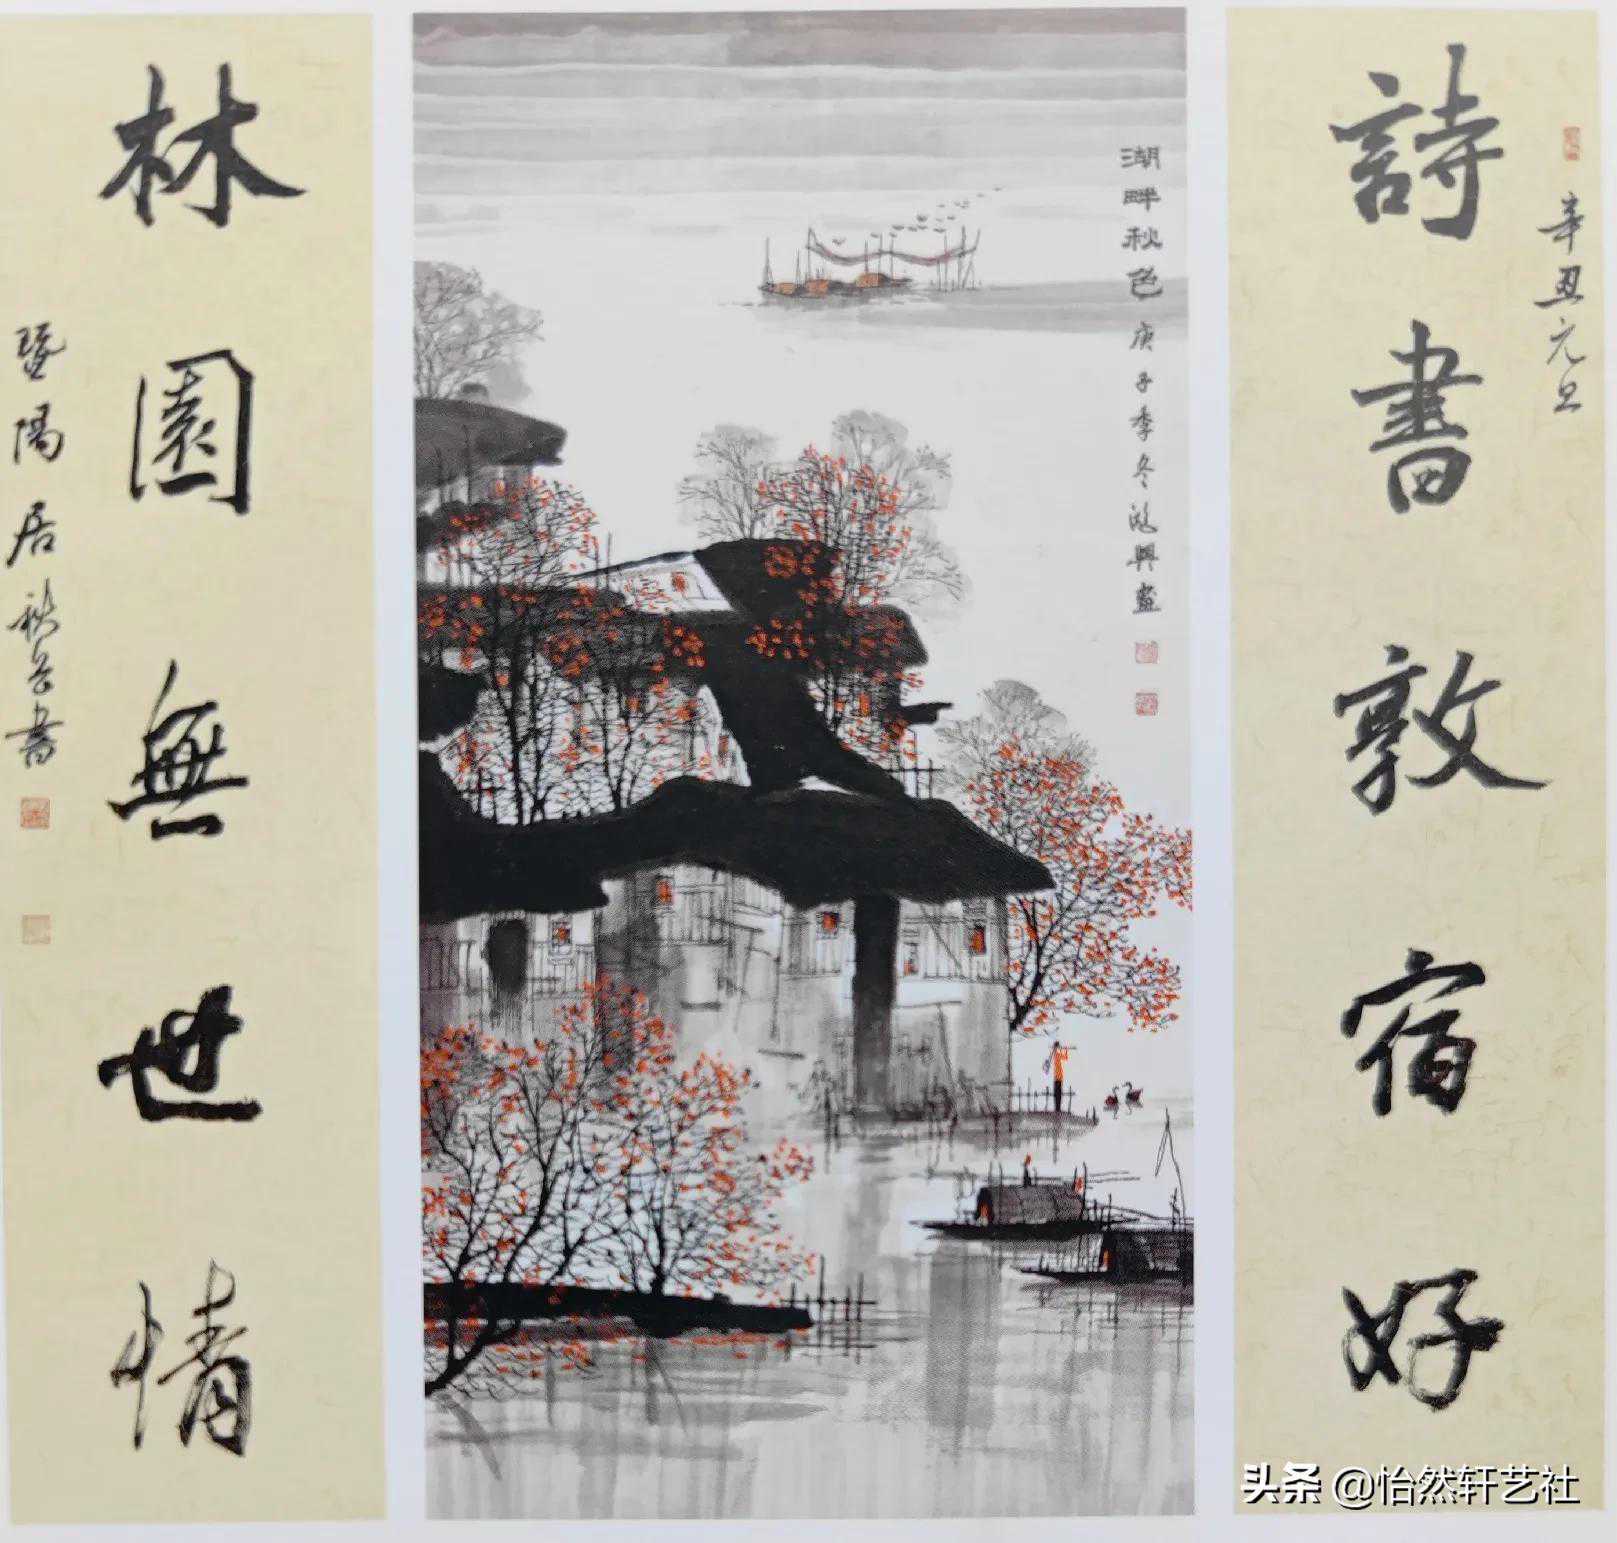 詩書敦宿好
辛丑元旦
湖畔秋色
庚子季冬鴻興畫
林園無世情
暨陽居秋谷書
头条 @怡然轩艺社